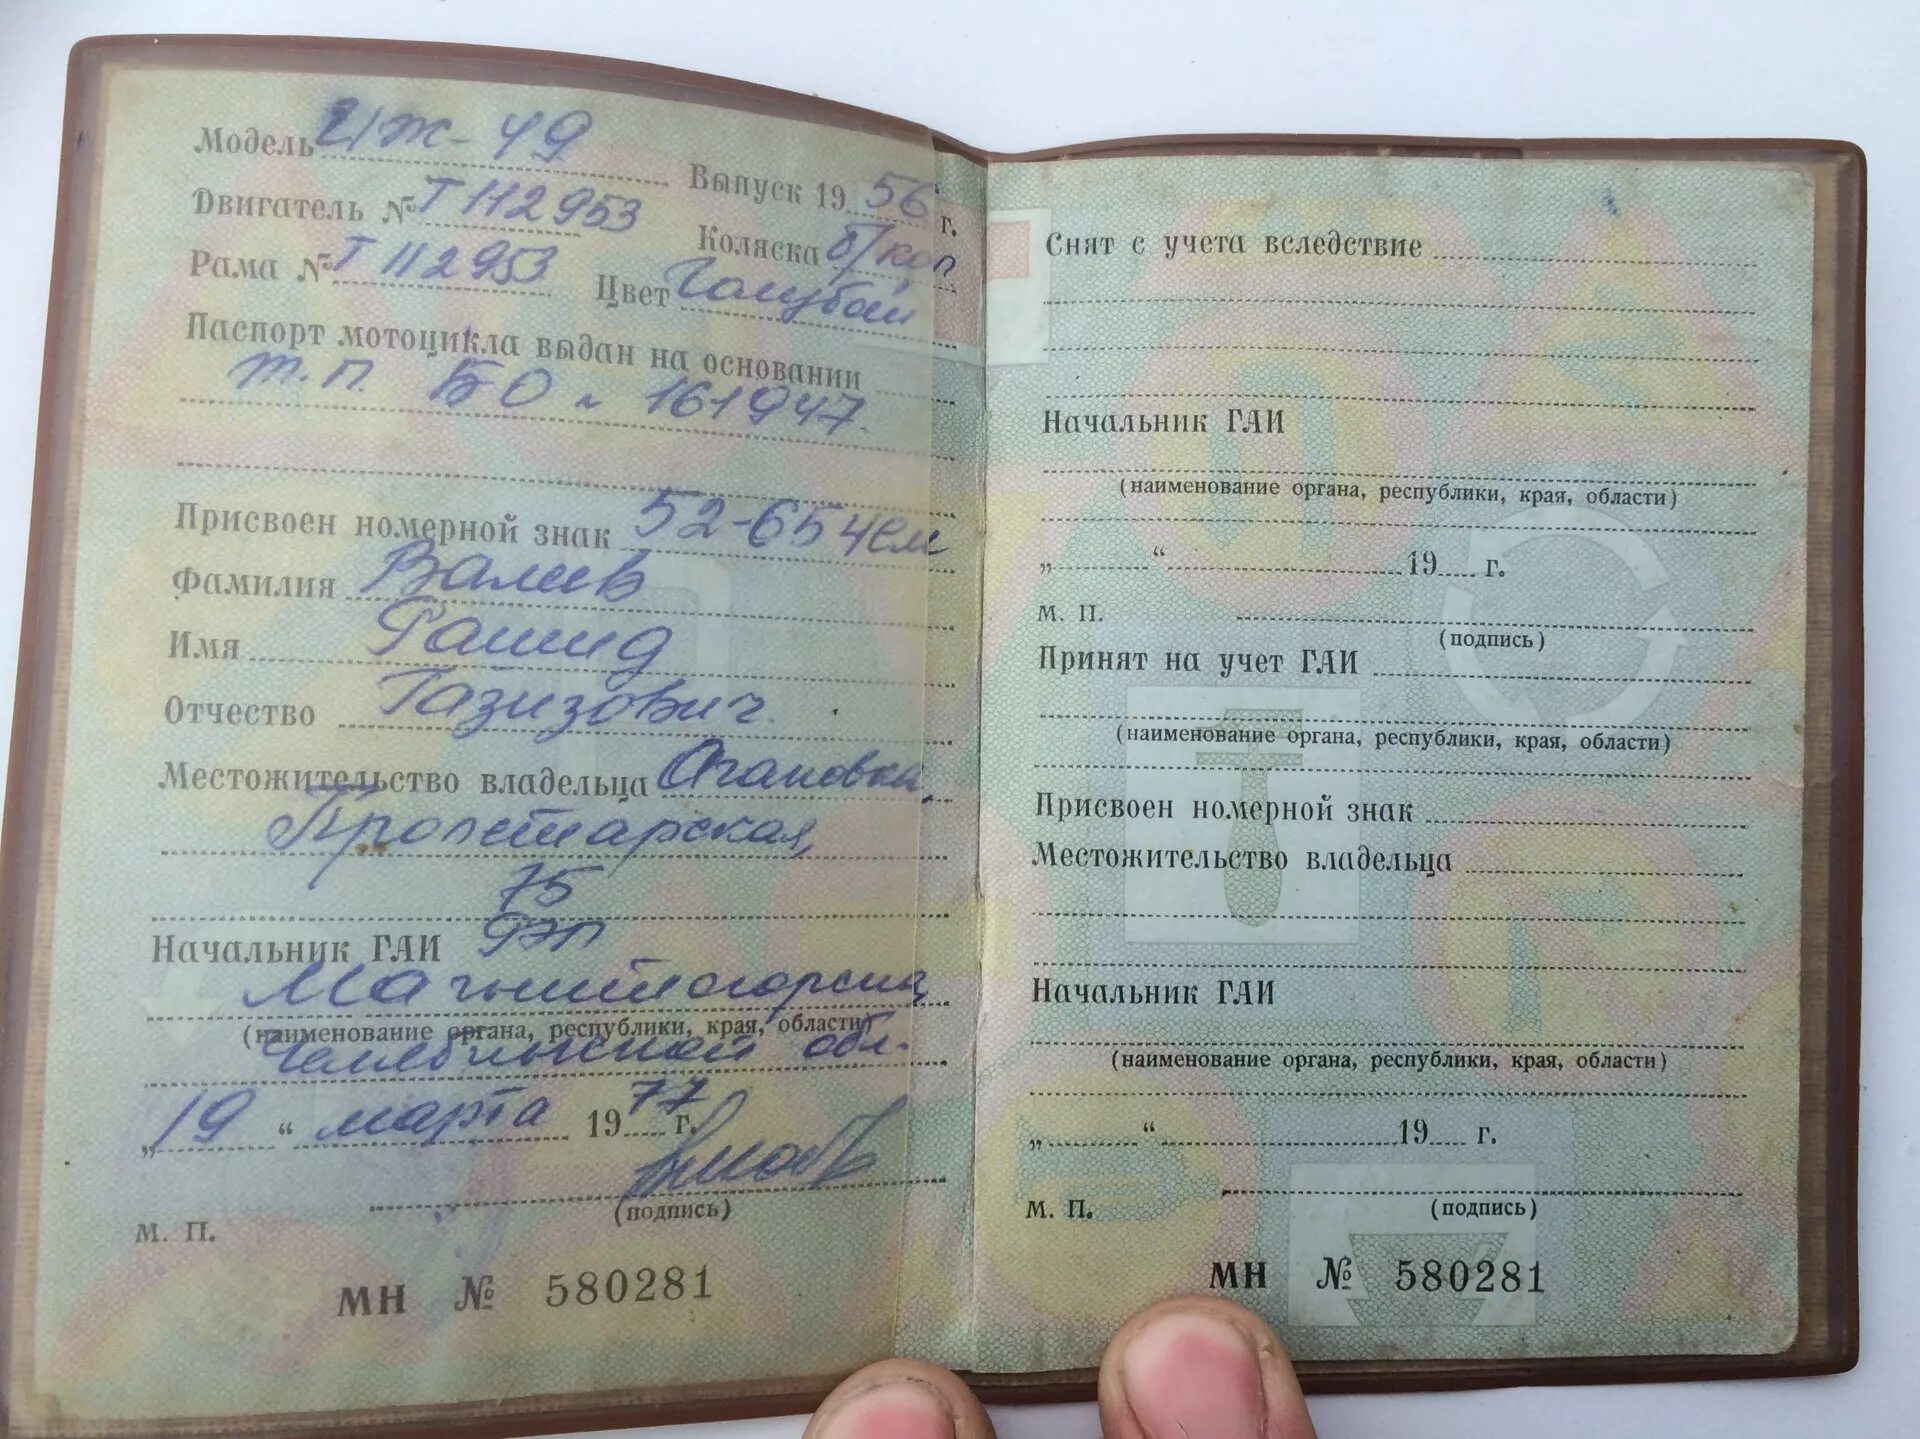 Модель Иж-49
Выпуск 1956 г.
Двигатель № Т 112953
Коляска б/кол
Рама № Т 112953 Цвет Голубой
Паспорт мотоцикла выдан на основании
т.п. БО № 161947.
Присвоен номерной знак 52-65 чем
Фамилия Валиев
Имя Рашид
Отчество Газизович
Местожительство владельца Агаповка,
Пролетарская,
75
Начальник ГАИ РЭП
Магнитогорска
(наименование органа, республики, края, области)
Челябинской обл.
„19“ марта 1977 г.
(подпись)
М. П.
МН № 580281
Снят с учета вследствие
Начальник ГАИ
(наименование органа, республики, края, области)
„ “ 19 г.
М. П.
(подпись)
Принят на учет ГАИ
(наименование органа, республики, края, области)
Присвоен номерной знак
Местожительство владельца
Начальник ГАИ
(наименование органа, республики, края, области)
„ “ 19 г.
М. П. (подпись)
МН № 580281